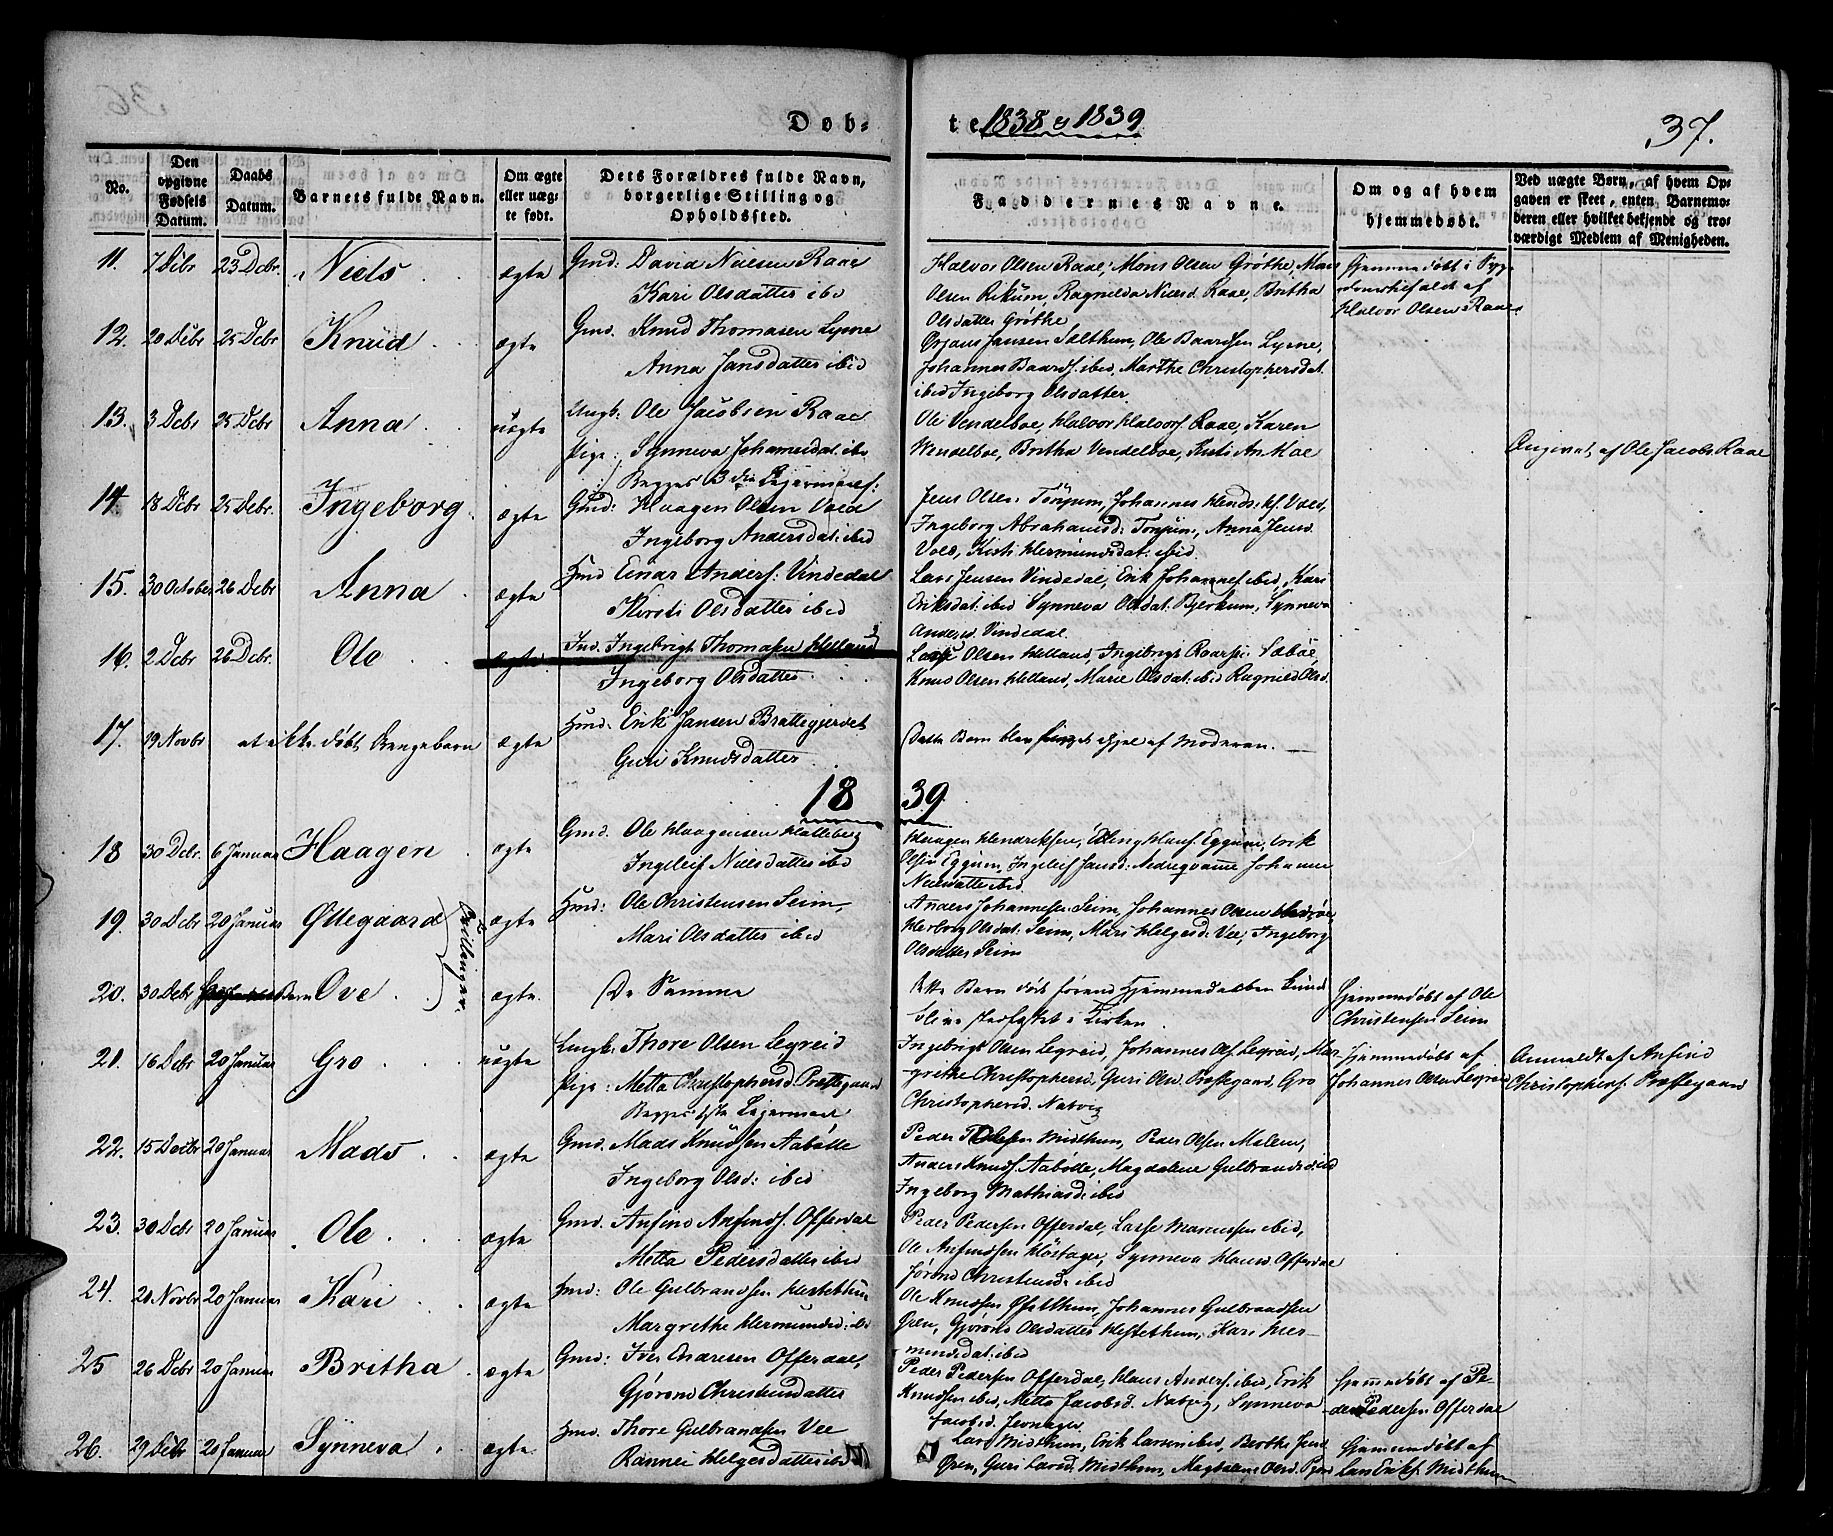 Døb-
te 1838 & 1839
37.
No.
Den opgivne Fødsels Datum.
Daabs Datum.
Barnets fulde Navn.
Om ægte eller uægte født.
Dets Forældres fulde Navn, borgerlige Stilling og Opholdssted.
Faddernes Navne.
Om og af hvem hjemmedøbt.
Ved uægte Børn, af hvem Opgaven er skeet, enten Barnemoderen eller hvilket bekjendt og troværdigt Medlem af Menigheden.
11. 7 Dcbr 23 Dcbr. Niels ægte Gmd: David Nielsen Raae
Kari Olsdatter ibid
Halvor Olsen Raae, Mons Olsen Grøthe, Mons
Olsen Rikum, Ragnilda Nielsd. Raae, Britha
Olsdatter Grøthe
Hjemmedøbt i Syg-
domstilfælde af
Halvor Olsen Raae
12. 20 Dcbr 25 Dcbr Knud ægte Gmd. Knud Thomasen Lysne
Anna Jansdatter ibid
Ørjans Jansen Salthun, Ole Baardsen Lysne,
Johannes Baards. ibid, Marthe Christophersdat.
ibid Ingeborg Olsdatter
13. 3 Dcbr 25 Dcbr Anna uægte Ungk: Ole Jacobsen Raae
Pige: Synneva Johannesdat. ibid
Begges Leiermaal:
Ole Vendelboe, Halvor Halvors. Raae, Karen
Wendelboe, Britha Vendelboe,
Angivet af Ole Jacobs. Raae
14. 18 Dcbr 25 Dcbr. Ingeborg ægte Gmd: Haagen Olsen Voea
Ingeborg Andersdat: ibid
Jens Olsen Tønjum, Johannes Voea,
Ingeborg Abrahamsd: Tønjum, Anna Jensd.
Voea, Kisti Hermundsdat: ibid
15. 30 October 26 Dcbr Anna ægte Hmd Einar Anders: Vindedal
Kirsti Olsdatter ibid
Lars Jensen Vindedal, Erik Johannes. ibid, Kari
Eriksdat. ibid Synneva Olsdat. Bjerkum, Synneva
Andersd. Vindedal
16. 2 Dcbr 26 Dcbr. Ole ægte Ind. Ingebrigt Thomasen Helland
Ingeborg Olsdatter
Lasse Olsen Helland, Ingebrigt Sæbøe,
Knud Olsen Helland, Marie Olsdat. ibid Ragnild Olsd.
17. 19 Novbr et ikke døbt Drengebarn ægte Hmd: Erik Jansen Brattegjerdet
Guri Knudsdatter
Dette Barn blev af Moderen.
18 39
18 30 Dcbr. 6 Januar Haagen ægte Gmd. Ole Haagensen Hatleberg
Ingeleif Nielsdatter ibid
Haagen Hendriksen, Elling Hans. Eggum, Erik
Olsen Eggum, Ingeleif Jansd: Johanne
Nielsdatter ibid
19. 30 Dcbr 20 Januar Øttegaard ægte Hmd: Ole Christensen Seim,
Mari Olsdatter ibid
Tvillinger.
Anders Johannesen Seim, Johannes Olsen
Herborg Olsdat: Seim, Mari Helgesd: Vee, Ingeborg
Olsdatter Seim
20. 30 Dcbr Ove ægte. De Samme
Dette Barn døde førend Hjemmedaaben kunde
blive stadfæstet i Kirken.
Hjemmedøbt af Ole
Christensen Seim
21. 16 Dcbr 20 Januar Gro uægte Ungk: Thore Olsen Legreid
Pige: Metta Christophersd Præstegaard
Begges 1ste Leiermaal
Ingebrigt Olsen Legreid, Johannes Ols. Legreid, Mar-
grethe Christophersd, Guri Olsd. Præstegaard, Gro
Christophersd. Natvig
Hjemmedøbt af
Johannes Olsen Legreid
Anmeldt af Anfind
Christophers. Præstegaard
22. 15 Dcbr 20 Januar Mads ægte Gmd. Mads Knudsen Aabøtte
Ingeborg Olsd: ibid
Peder Midthun, Peder Olsen Molem,
Anders Knuds. Aabøtte, Magdalena Gulbrandsd. ibid
Ingeborg Mathiasd: ibid
23. 30 Dcbr 20 Januar Ole ægte Gmd. Anfind Anfinds. Offerdal
Metta Pedersdatter ibid
Peder Pedersen Offerdal, Lasse Marcussen ibid,
Ole Anfindsen Kløstager, Synneva Hansd. Offerdal
Jørond Christensd. ibid
24. 20 Novbr 20 Januar Kari ægte Hmd: Ole Gulbrandsen Hestethun
Margrethe Hermundsd: ibid
Ole Knudsen Øfstthun, Johannes Gulbrandsen
Øren, Gjørond Olsdatter Hestethun, Kari Her-
mundsdat: ibid
25 26 Dcbr 20 Januar Britha ægte Gmd: Iver Endresen Offerdal,
Gjørond Christensdatter
Peder Pedersen Offerdal, Hans Anders. ibid, Erik
Knudsen ibid, Metta Jacobsd. Natvig, Synneva
Jacobsd. Jernager
Hjemmedøbt af Pe-
der Pedersen Offerdal
26. 29 Dcbr 20 Januar Synneva ægte Hmd. Thore Gulbrandsen Vee
Rannei Helgesdatter ibid
Lars Midthun, Erik Larsen ibid, Berthe Jensd.
Øren, Guri Larsd. Midthun, Magdalena Olsd.
Hjemmedøbt af
Lars Eriks. Midthun